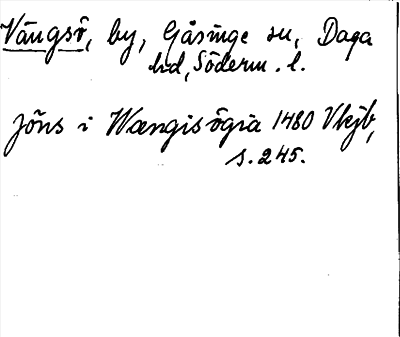 Vängsö, by, Gåsinge sn, Daga
hd, Söderm. l.
Jöns i Wængis ögia 1480 Vkjb,
s. 245.